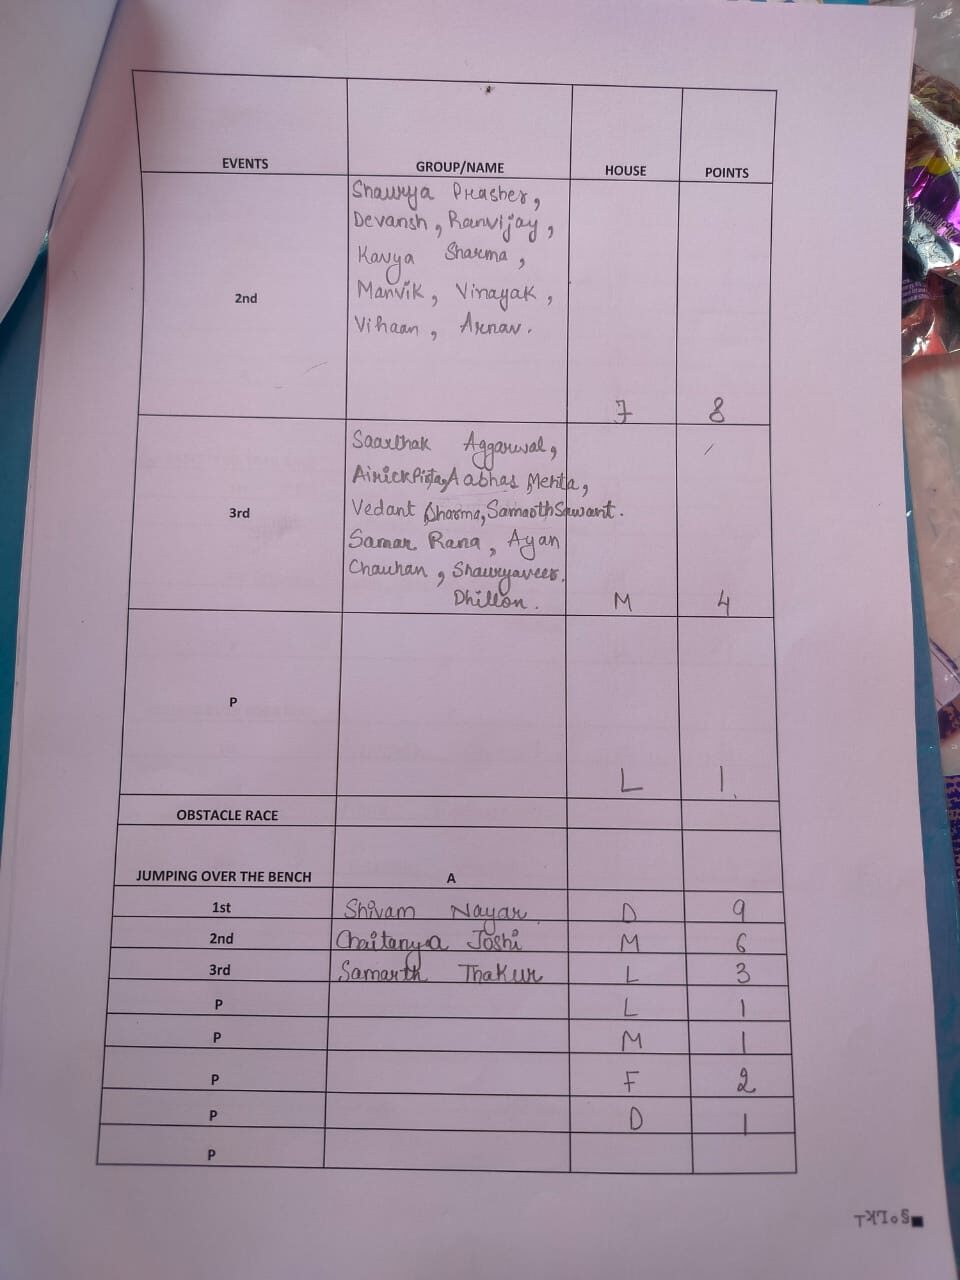 EVENTS GROUP/NAME HOUSE POINTS
Shaurya Prasher,
Devansh, Ranvijay,
Kavya Sharma,
2nd Manvik, Vinayak,
Vihaan, Arnav.
F 8
Saarthak Aggarwal,
Aabhas Mehta,
3rd Vedant Sharma, Samarth Sawant.
Samar Rana, Ayan
Chauhan, Shauryaveer
Dhillon. M 4
P
L 1.
OBSTACLE RACE
JUMPING OVER THE BENCH A
1st Shivam Nayar D 9
2nd Chaitanya Joshi M 6
3rd Samarth Thakur L 3
P L 1
P M 1
P F 2
P D 1
P